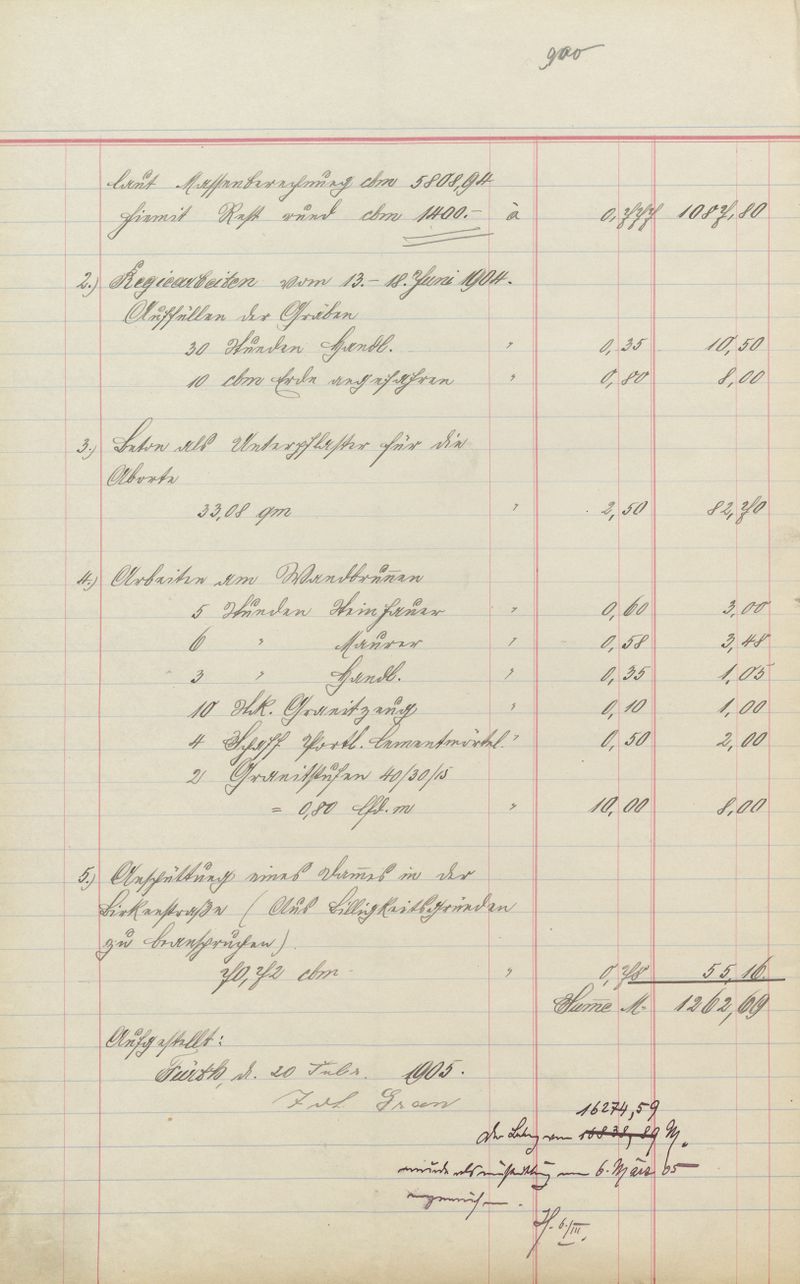 900
laut Massenberechnung cbm 5808,94
hiemit Rest rund cbm 1400.- à 0,777 1087,80
2.) Regiearbeiten vom 13.- 18. Juni 1904.
Auffüllen der Gräben
30 Stunden Handl. " 0,35 10,50
10 cbm Erde angefahren " 0,80 8,00
3.) Beton als Unterpflaster für die
Aborte
33,08 qm " 2,50 82,70
4.) Arbeiten am Wandbrunnen
5 Stunden Steinhauer " 0,60 3,00
6 " Maurer " 0,58 3,48
3 " Handl. " 0,35 1,05
10 Stk. Granitzeug " 0,10 1,00
4 Schaff Portl. Cementmörtel " 0,50 2,00
2 Granitstufen 40/30/15
= 0,80 lfd. m " 10,00 8,00
5.) Anschüttung eines Dammes in der
Birkenstraße (Aus Billigkeitsgründen
zu beanspruchen).
70,72 cbm " 0,78 55,16
Summe M. 1262,69
Aufgestellt:
Fürth, d. 20 Febr. 1905.
16274,59
Der Betrag von 16838,89 M.
wurde als am 6. März 05
6./III.